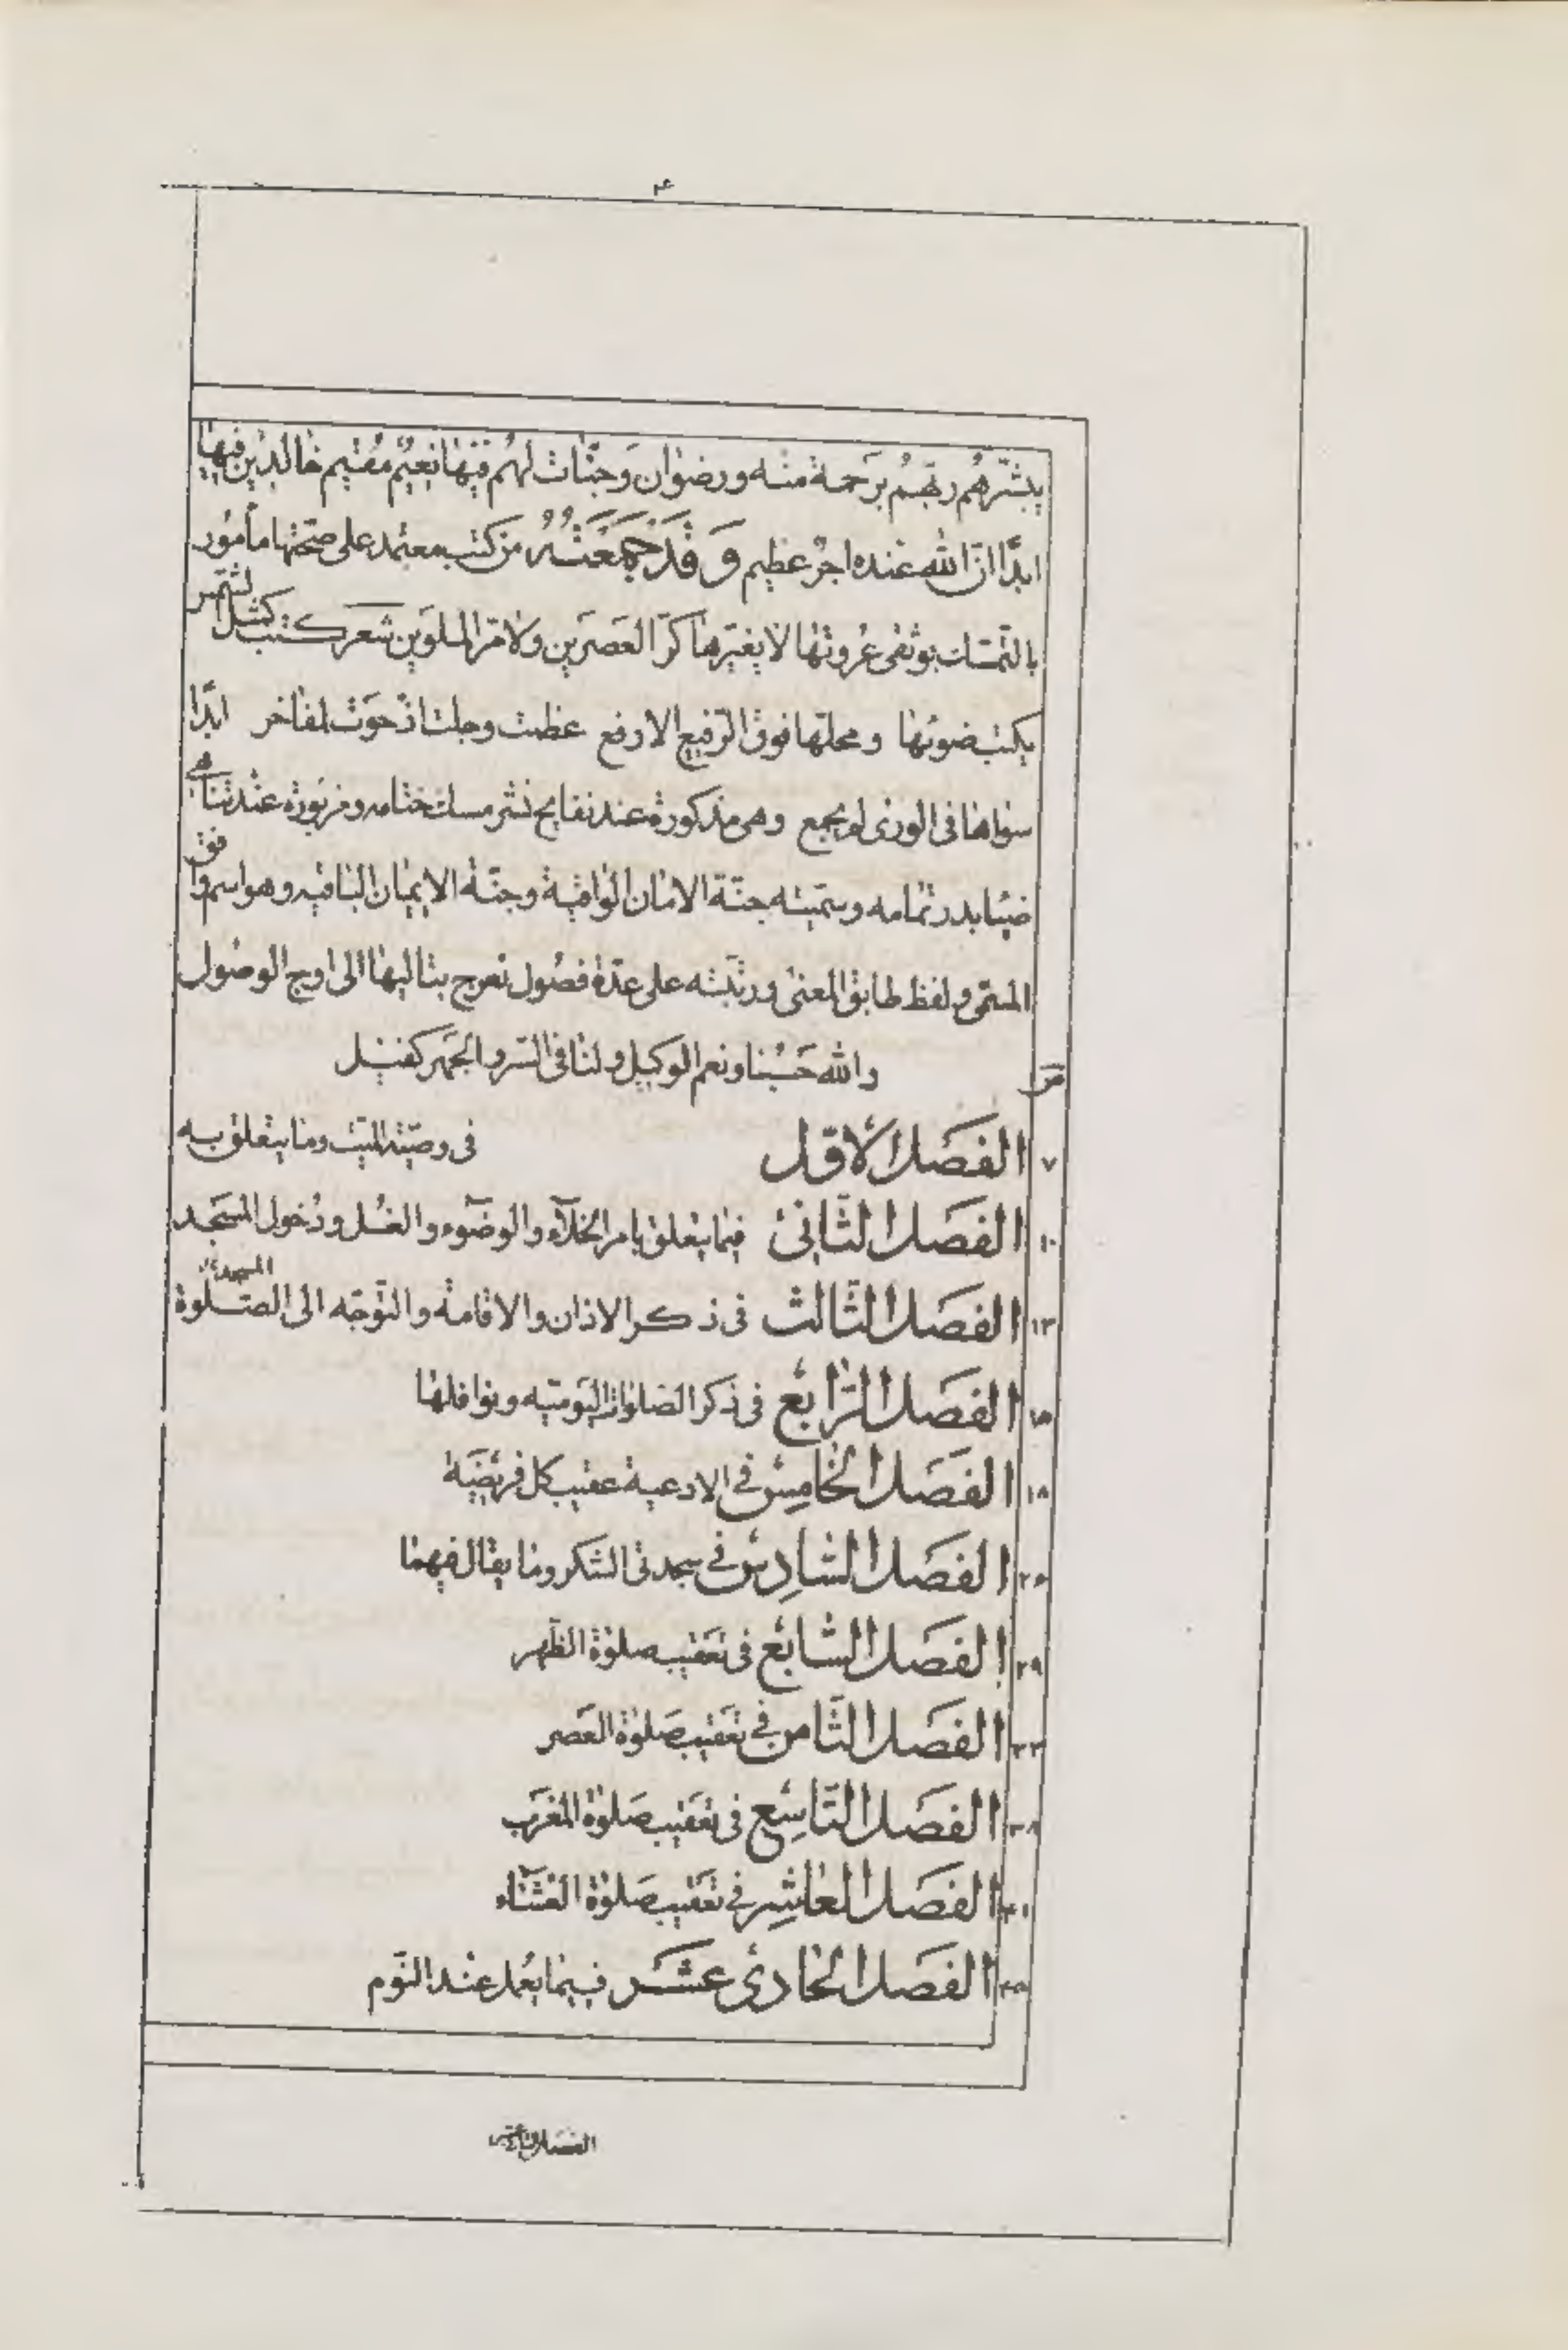 ۴
يبشّرهم ربّهم برحمة منه ورضوان وجنّات لهم فيها نعيم مقيم خالدين فيها
ابدًا انّ الله عنده اجر عظيم وَقَدْ جَمَعْتُهُ من كتب معتمد على صحّتها مأمور
بالتمسّك بوثقى عروتها لا يغيّرها كرّ العصرين ولا مرّ الملوين شعر كتب كمثل الشمس
يكتب ضوئها ومحلّها فوق الرفيع الارفع عظمت وجلت اذ حوت لمفاخر ابدًا
سواها فى الورى لم يجمع وهى مذكورة عند نفايح نشر مسك ختامه ومزبورة عند تناهى
ضياء بدر تمامه وسمّيته جنّة الامان الواقية وجنّة الايمان الباقيه وهو اسم وافق
المسمّى ولفظ طابق المعنى ورتّبته على عدّة فصول تعرج بتاليها الى اوج الوصول
والله حَسْبُنا ونعم الوكيل ولنا فى السّر والجهر كفيل
۷ الفصل الاوّل فى وصيّة الميّت وما يتعلّق به
۱۰ الفصل الثّانى فيما يتعلّق بامر الخلآء والوضوء والغسل ودخول المسجد
۱۳ الفصل الثّالث فى ذكر الاذان والاقامة والتوجّه الى الصّلوة
المسجد
۱۵ الفصل الرّابع فى ذكر الصلوات اليوميّه ونوافلها
۱۸ الفصل الخامس فى الادعية عقيب كل فريضة
۲۶ الفصل السّادس فى سجدتى الشكر وما يقال فيهما
۲۹ الفصل السّابع فى تعقيب صلوة الظّهر
۳۳ الفصل الثّامن فى تعقيب صلوة العصر
۳۸ الفصل التّاسع فى تعقيب صلوة المغرب
۴۱ الفصل العاشر فى تعقيب صلوة العشآء
۴۵ الفصل الحادى عشر فيما يعمل عند النّوم